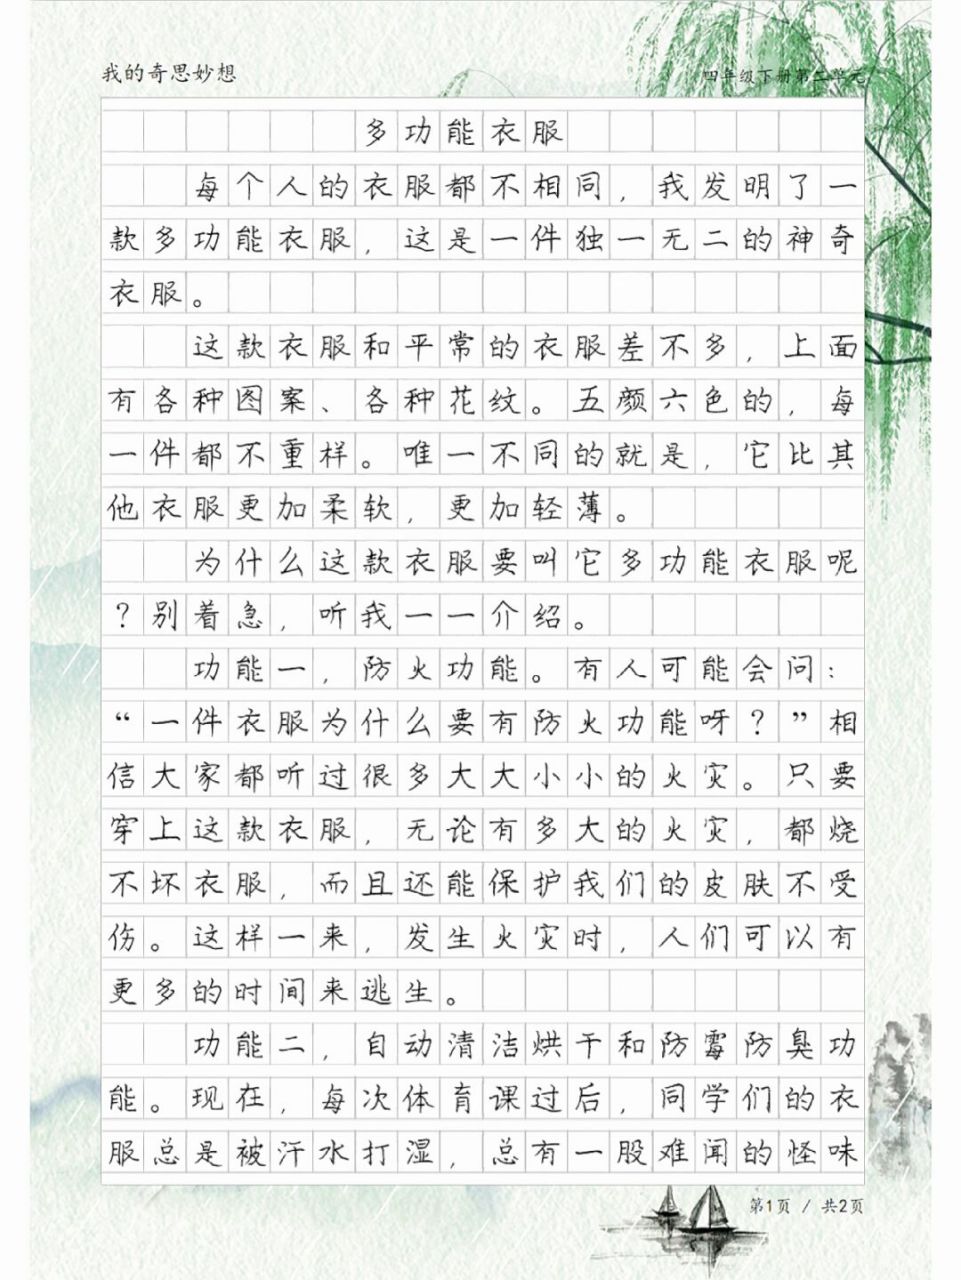 我的奇思妙想
四年级下册第二单元
多功能衣服
每个人的衣服都不相同，我发明了一
款多功能衣服，这是一件独一无二的神奇
衣服。
这款衣服和平常的衣服差不多，上面
有各种图案、各种花纹。五颜六色的，每
一件都不重样。唯一不同的就是，它比其
他衣服更加柔软，更加轻薄。
为什么这款衣服要叫它多功能衣服呢
？别着急，听我一一介绍。
功能一，防火功能。有人可能会问：
“一件衣服为什么要有防火功能呀？”相
信大家都听过很多大大小小的火灾。只要
穿上这款衣服，无论有多大的火灾，都烧
不坏衣服，而且还能保护我们的皮肤不受
伤。这样一来，发生火灾时，人们可以有
更多的时间来逃生。
功能二，自动清洁烘干和防霉防臭功
能。现在，每次体育课过后，同学们的衣
服总是被汗水打湿，总有一股难闻的怪味
第1页 / 共2页